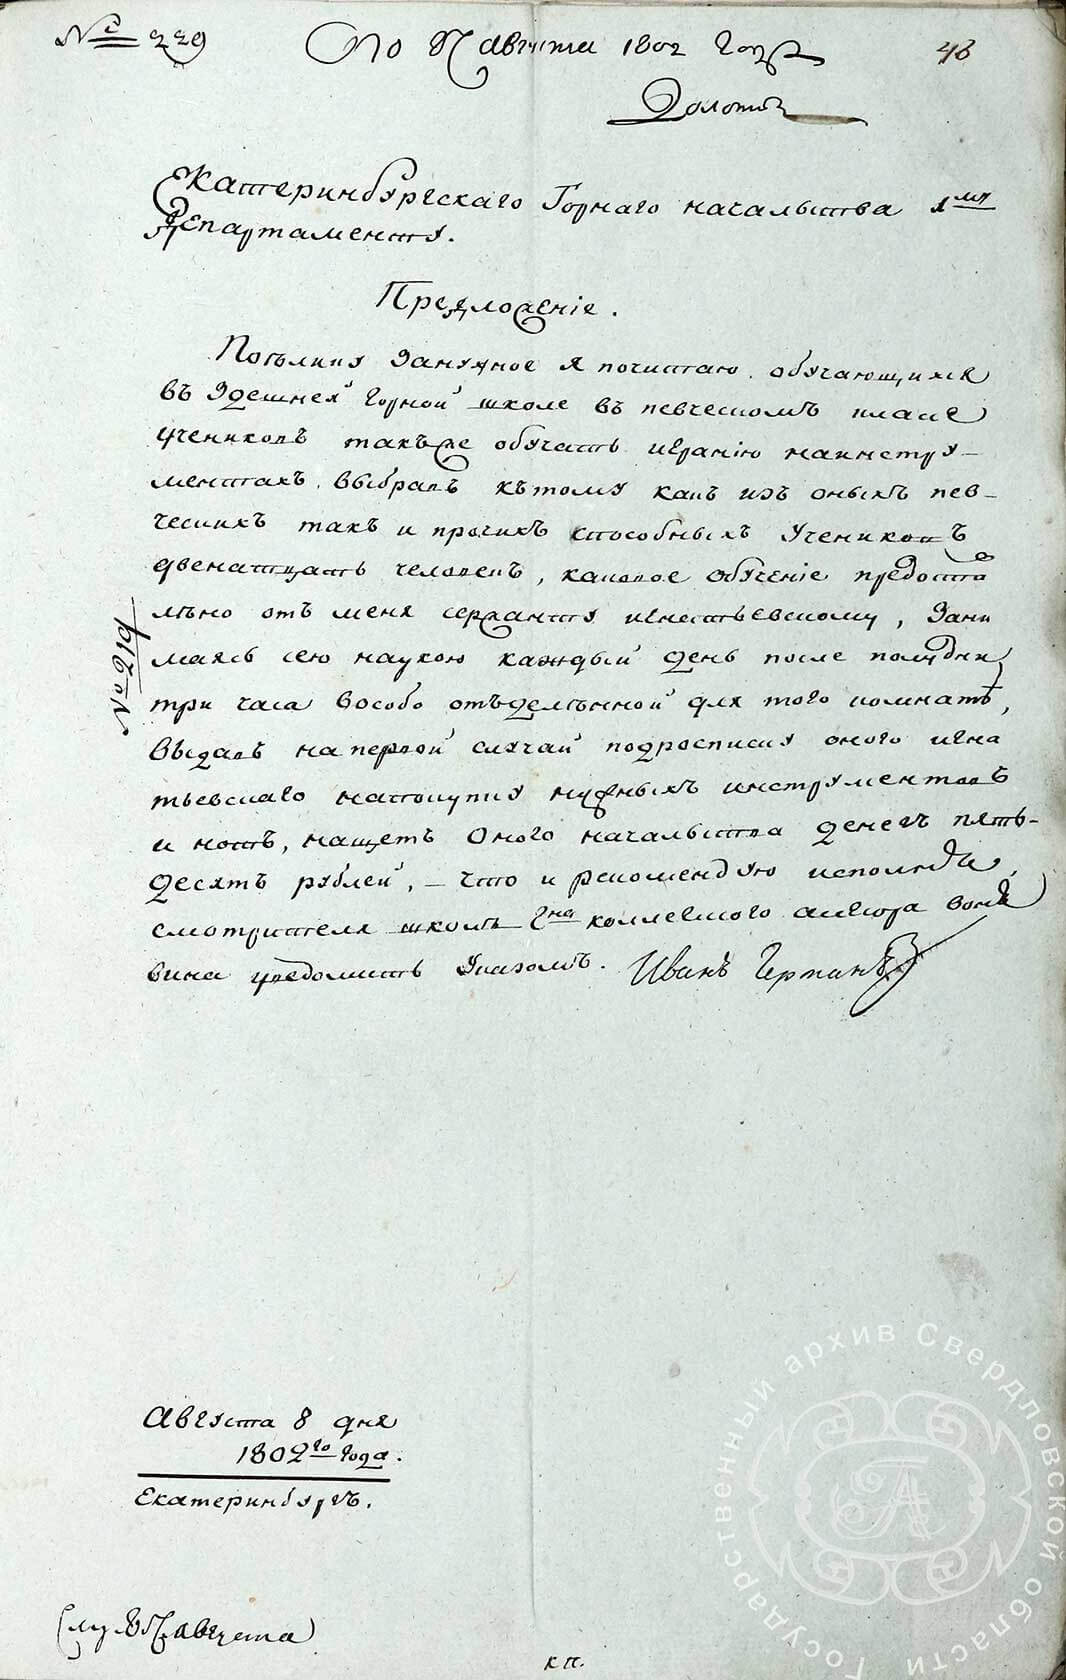 № 229
По августа 1802 году
48
Екатеринбургскаго Горнаго начальства 1му
Департаменту.
Предложеніе.
Поелику Занужное я почитаю обучающихся
въ Здешней Горной школе въ певческомъ класе
учениковъ такъже обучать игранію наинстру-
ментахъ, выбравъ ктому какъ изъ оныхъ пев-
ческихъ такъ и прочихъ способныхъ Учениковъ
двенатцать человекъ, каковое обученіе предоста
влено отъ меня сержанту игнатьевскому, Зани
маясь сею наукою каждый день после полудни
три часа вособо отъделенной для того комнатѣ,
выдавъ напервой случай подросписку оного игна
тьевскаго напокупку нужныхъ инструментовъ
и нотъ, нащетъ Оного начальства денегъ пять-
десятъ рублей, – что и рекомендую исполнить,
смотрителя школъ Гна коллежского асесора воня
вина уведомить Указомъ. Иванъ Германъ
№ 219
Августа 8 дня
1802го года.
Екатеринбургъ.
августа
к п.
Государственный архив Свердловской области
ГА